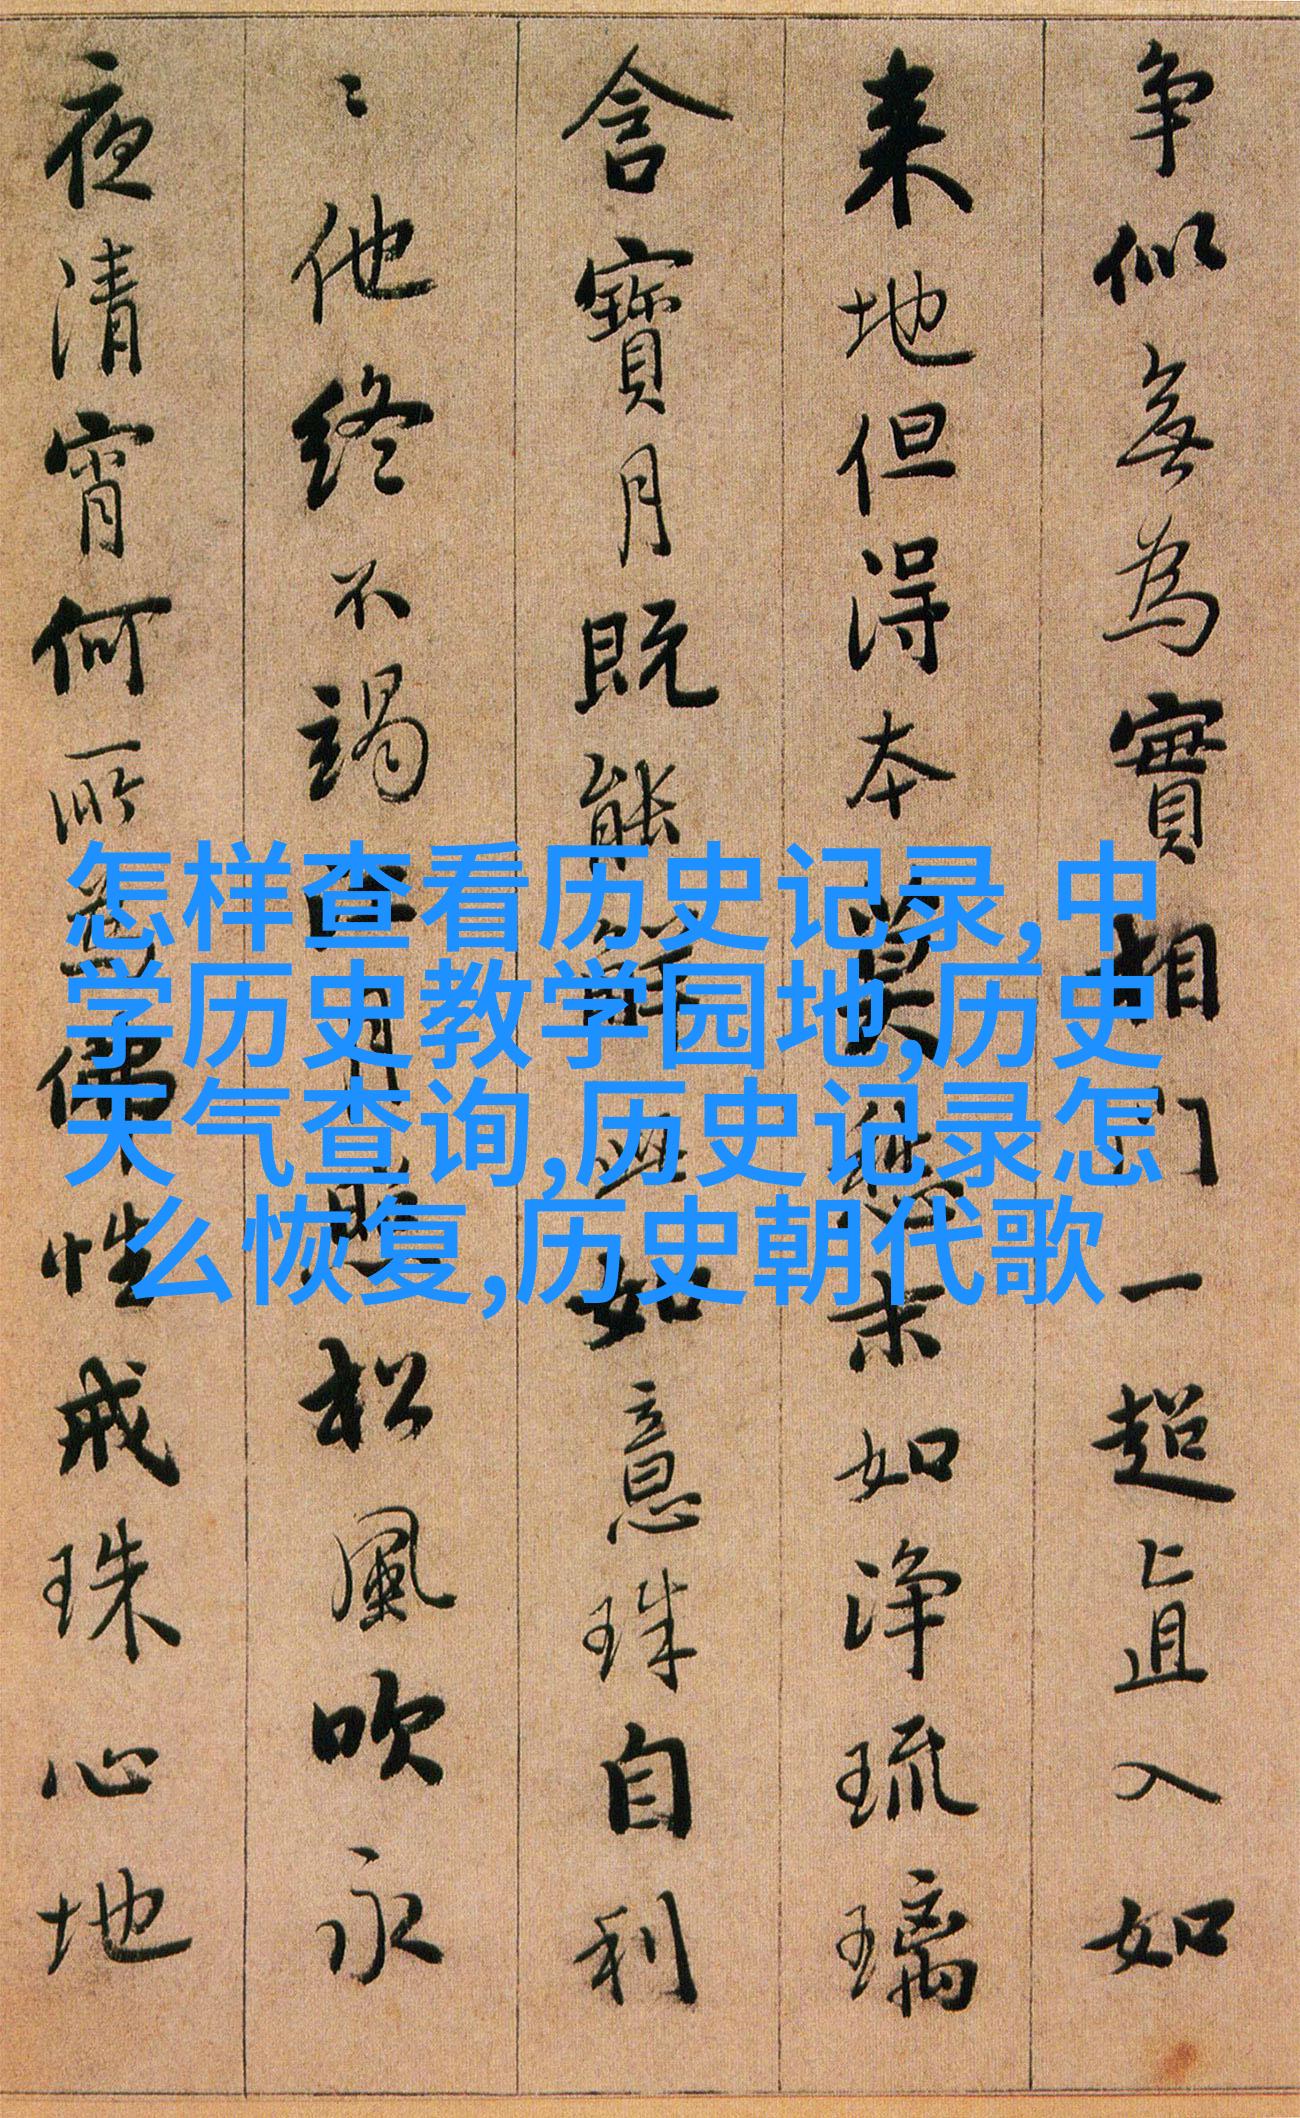 争似無為實相門一超直入如
来地但得本莫愁末如淨琉璃
含寶月既能解此如意珠自利
〻他終不竭江月照松風吹永
夜清宵何所為佛性戒珠心地
怎样查看历史记录,中
学历史教学园地,历史
天气查询,历史记录怎
么恢复,历史朝代歌